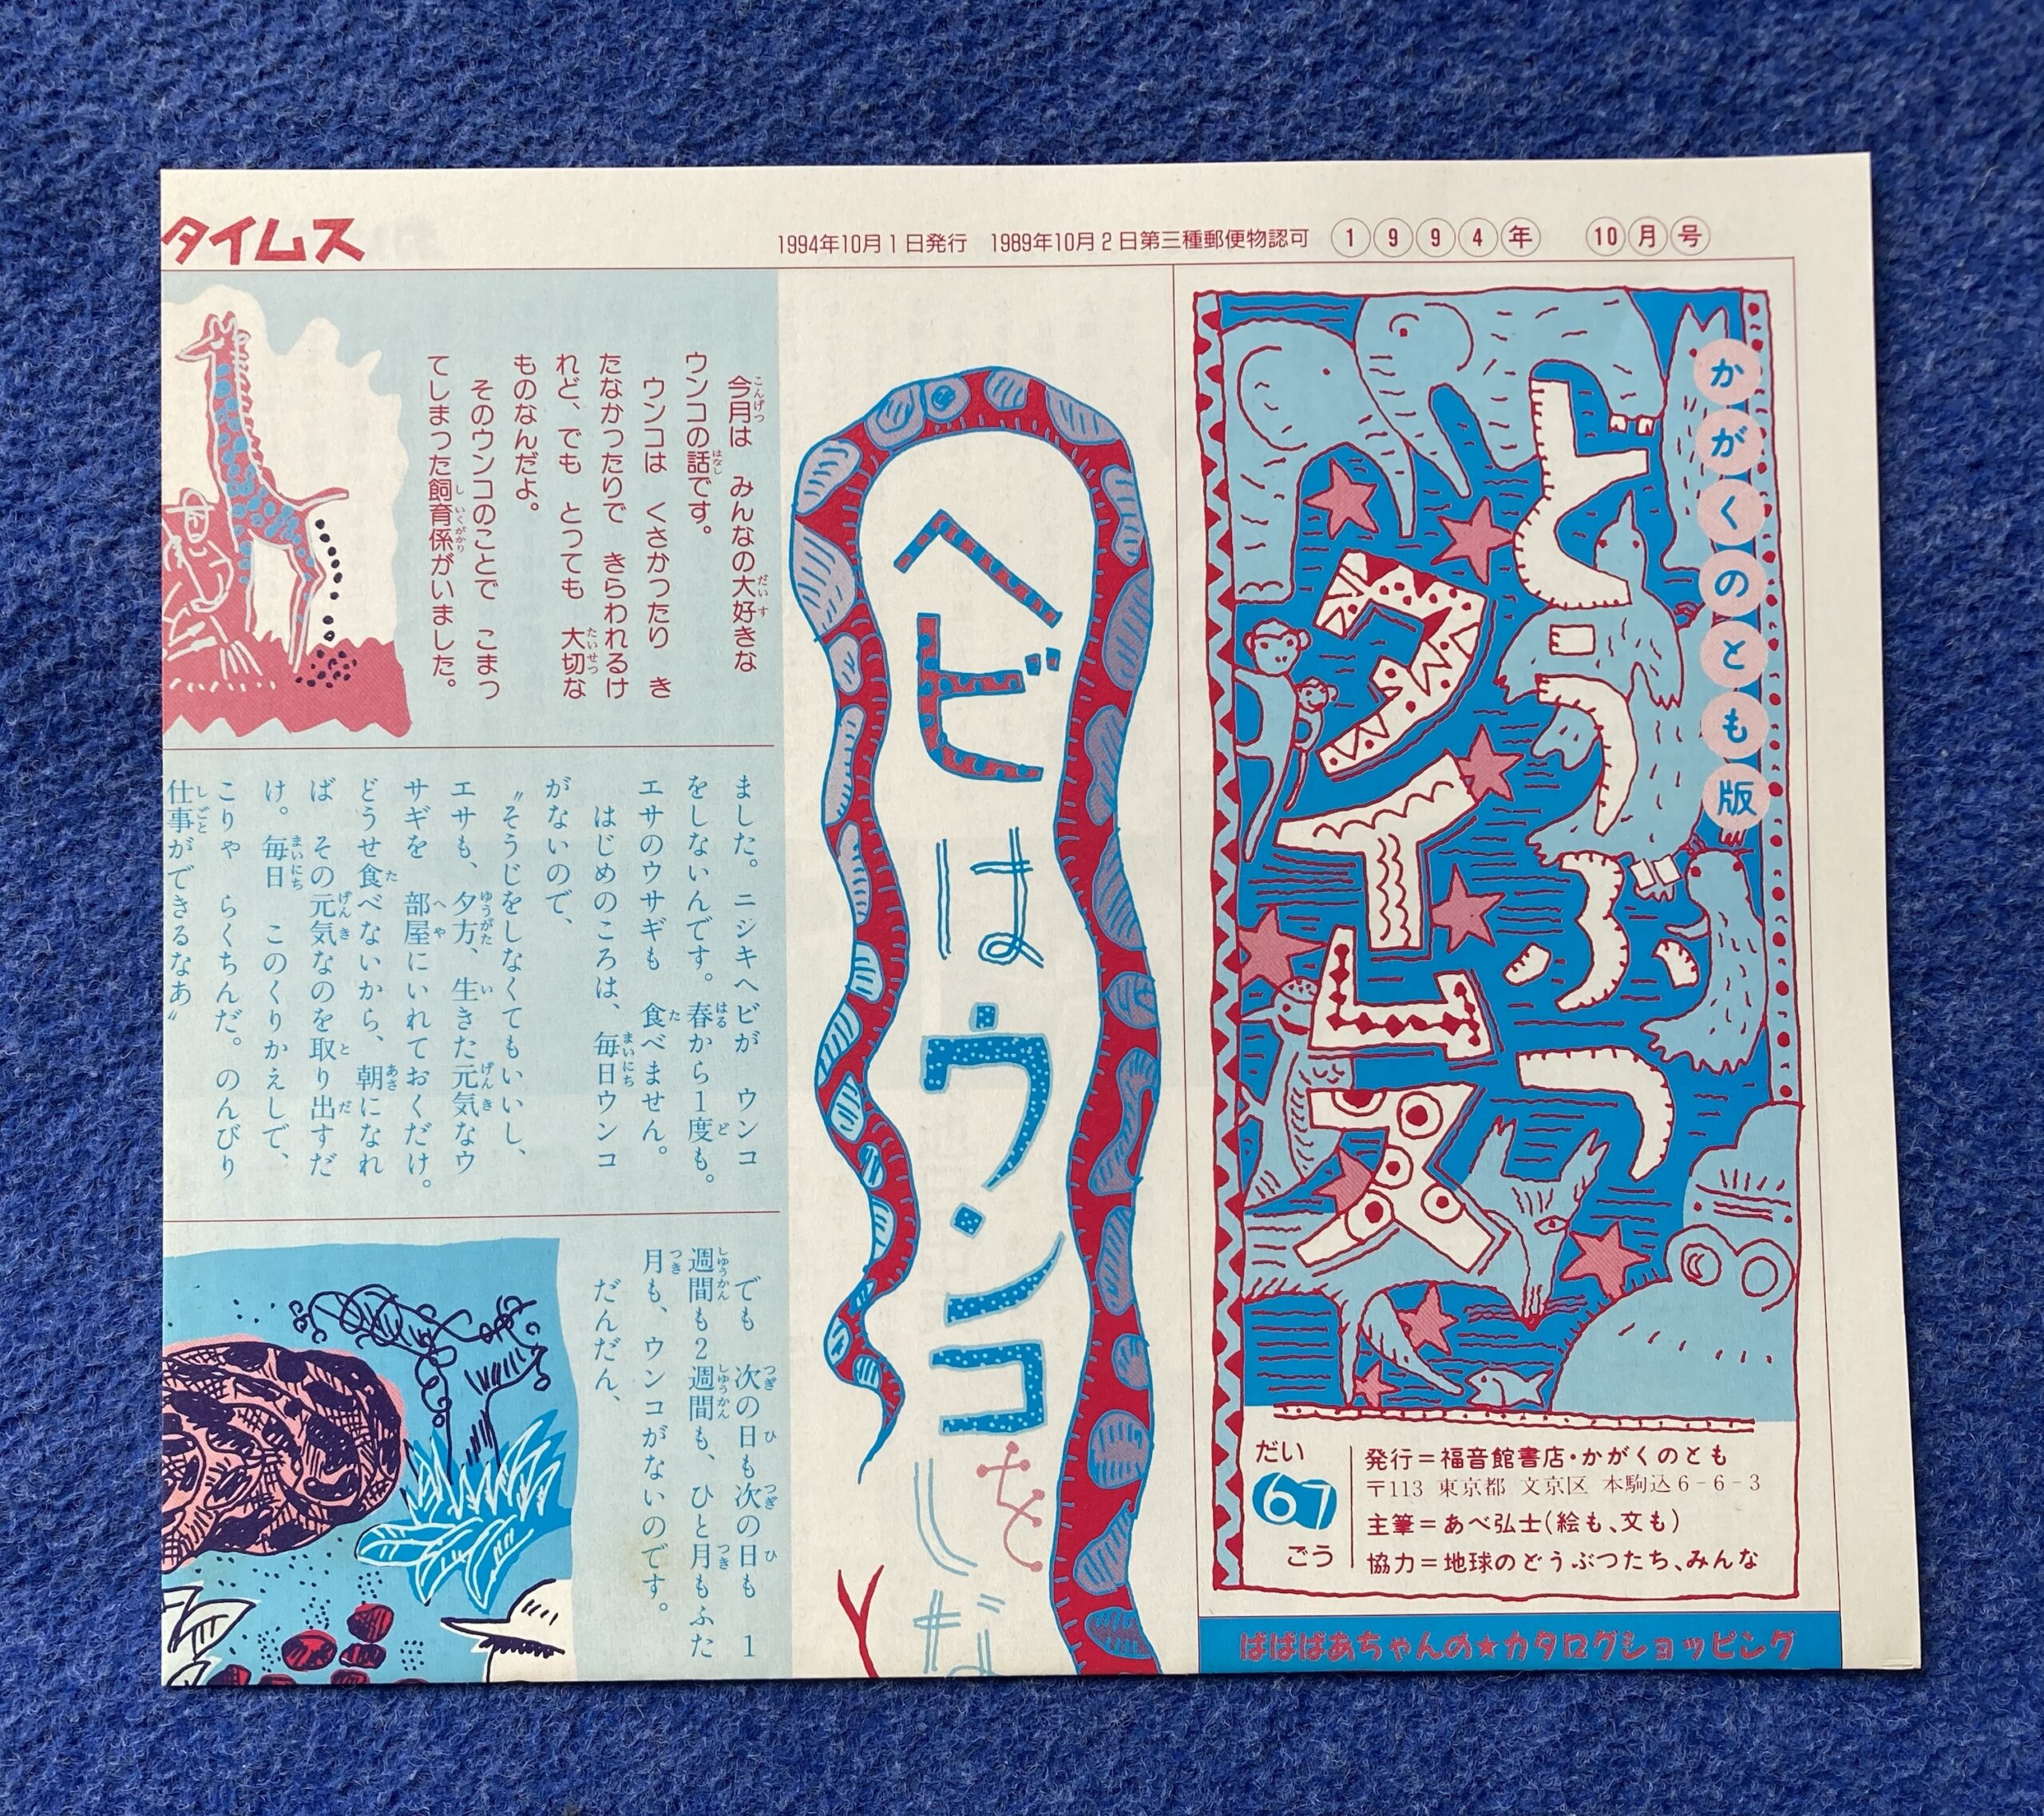 タイムス
1994年10月1日発行　1989年10月2日第三種郵便物認可　1994年　10月号
かがくのとも版
どうぶつ
タイムス
だい
67
ごう
発行＝福音館書店・かがくのとも
〒113 東京都 文京区 本駒込6-6-3
主筆＝あべ弘士(絵も、文も)
協力＝地球のどうぶつたち、みんな
ばばばあちゃんの★カタログショッピング
ヘビはウンコをしな
今月は　みんなの大好きな
ウンコの話です。
ウンコは　くさかったり　き
たなかったりで　きらわれるけ
れど、でも　とっても　大切な
ものなんだよ。
そのウンコのことで　こまっ
てしまった飼育係がいました。
ました。ニシキヘビが　ウンコ
をしないんです。春から1度も。
エサのウサギも　食べません。
はじめのころは、毎日ウンコ
がないので、
〝そうじをしなくてもいいし、
エサも、夕方、生きた元気なウ
サギを　部屋にいれておくだけ。
どうせ食べないから、朝になれ
ば　その元気なのを取り出すだ
け。毎日　このくりかえしで、
こりゃ　らくちんだ。のんびり
仕事ができるなあ〟
でも　次の日も次の日も　1
週間も2週間も、ひと月もふた
月も、ウンコがないのです。
だんだん、